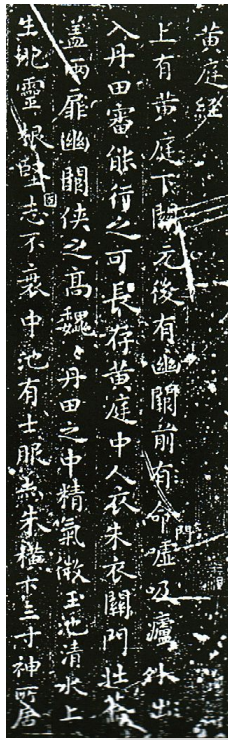 黄庭経
上有黄庭下關元後有幽闕前有命門嘘吸廬外出
入丹田審能行之可長存黄庭中人衣朱衣關門壮蘥
盖兩扉幽闕侠之高魏〻丹田之中精氣微玉池清水上
生肥靈根堅固志不衰中池有士服赤朱横下三寸神所居